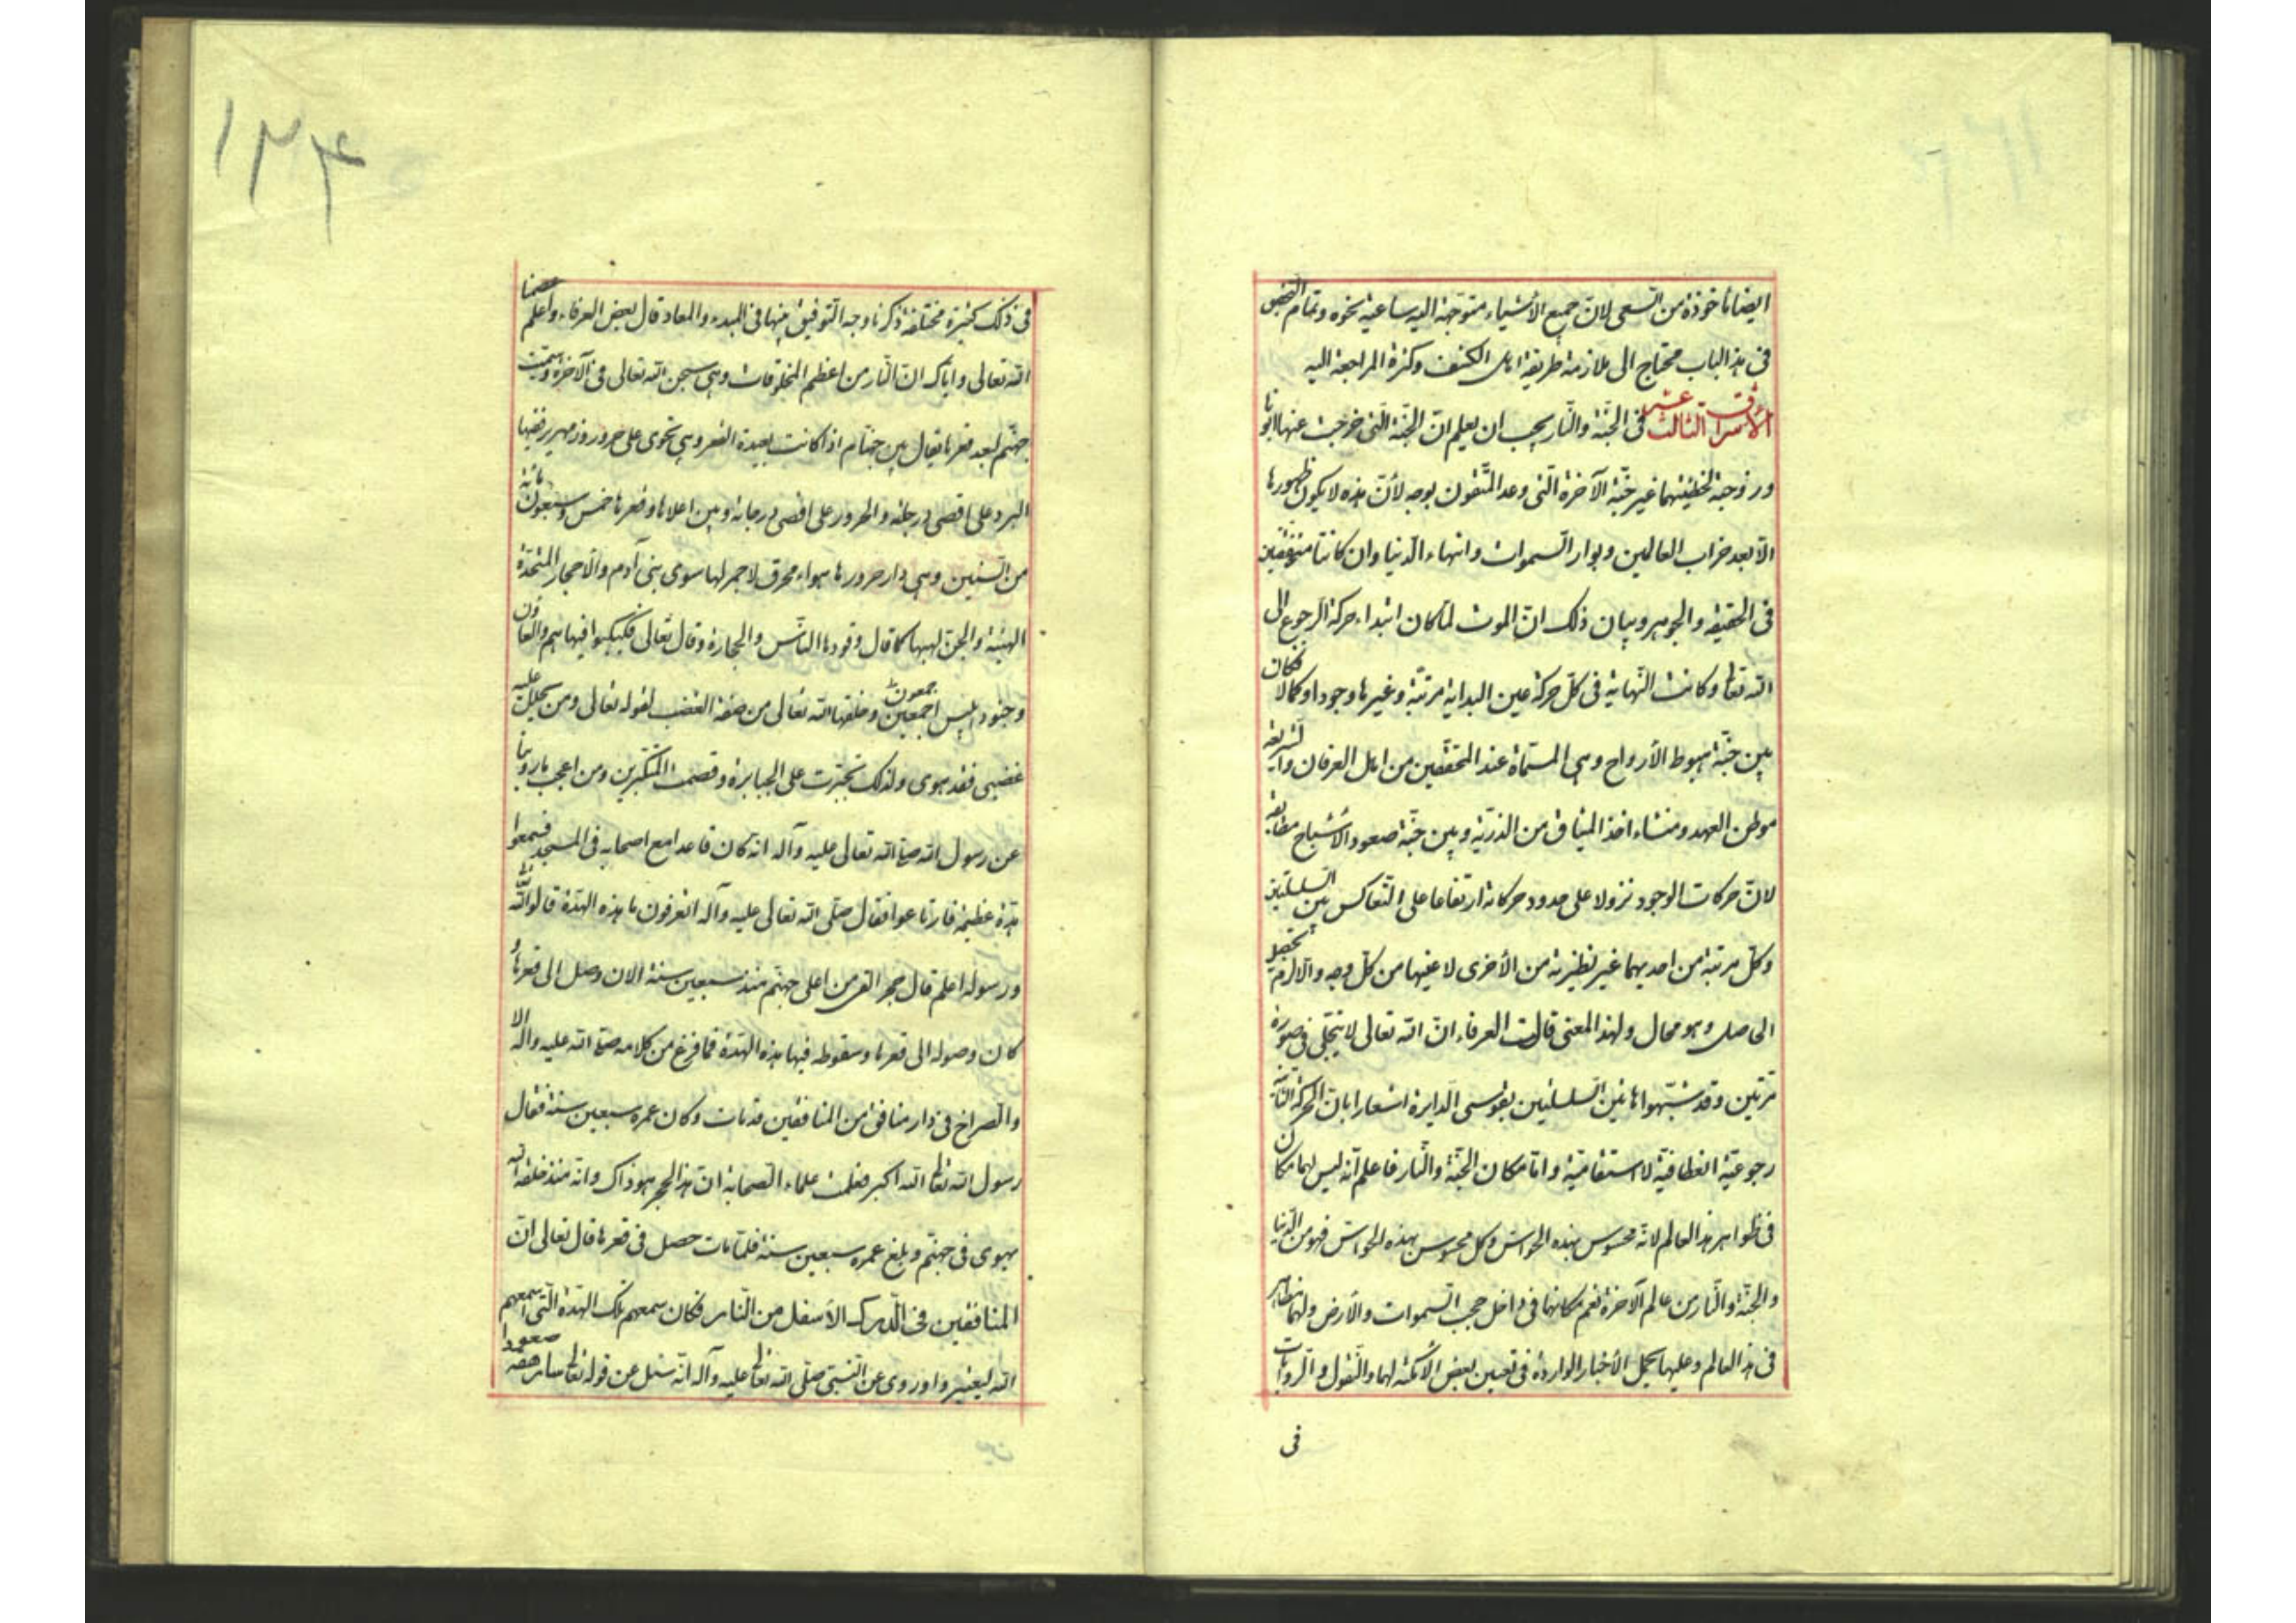 ايضا ماخوذة من السعى لانّ جميع الأشياء متوجّهة اليه ساعية نحوه وتمام الفحص
فى هذا الباب محتاج الى ملازمة طريقة اهل الكشف وكثرة المراجعة اليه
الأشراق الثالث عشر فى الجنّة والنّار يجب ان يعلم انّ الجنّة التى خرجت عنها ابونا
وزوجته لخطيئتهما غير جنّة الآخرة الّتى وعد المتّقون بوجه لأنّ هذه لا يكون ظهورها
الّا بعد خراب العالمين وبوار السموات وانتهاء الدنيا وان كانتا متفقتين
فى الحقيقة والجوهر وبيان ذلك انّ الموت لمّا كان ابتداء حركة الرجوع الى
اللّه تعالى وكانت النّهاية فى كلّ حركة عين البداية مرتبة وغيرها وجودا وكمالا فكان
بين جنّة هبوط الأرواح وهى المسمّاة عند المحقّقين من اهل العرفان والشريعة
موطن العهد ومنشاء اخذ الميثاق من الذرّية وبين جنّة صعود الأشباح مطابقة
لانّ حركات الوجود نزولا على حدود حركاته ارتفاعا على التعاكس بين السلسلتين
وكلّ مرتبة من احديهما غير نظيرته من الأخرى لا عينها من كلّ وجه والّا لزم تحصيل
الحاصل وهو محال ولهذا المعنى قالت العرفاء انّ اللّه تعالى لا يتجلّى فى صورة
مرّتين وقد شبّهوا هاتين السلسلتين بقوسى الدايرة اشعارا بان الحركة الثّانية
رجوعيّة انعطافيّة لا استقاميّة وامّا مكان الجنّة والنّار فاعلم انّه ليس لهما مكان
فى ظواهر هذا العالم لانّه محسوس بهذه الحواسّ وكل محسوس بهذه الحواسّ فهو من الدّنيا
والجنّة والنّار من عالم الآخرة نعم مكانها فى داخل حجب السموات والأرض ولهما مظاهر
فى هذا العالم وعليها يحمل الأخبار الواردة فى تعيين بعض الأمكنة لهما والنّقول والروايات
فى
١٣٤
فى ذلك كثيرة مختلفة ذكرنا وجه التوفيق بينها فى المبدء والمعاد قال بعض العرفاء واعلم عصمنا
اللّه تعالى واياك انّ النّار من اعظم المخلوقات وهى سجن اللّه تعالى فى الآخرة وسمّيت
جهنّم لبعد قعرها يقال بين جهنّام اذا كانت بعيدة القعر وهى تحوى على حرور وزمهرير ففيها
البرد على اقصى درجاته والحرور على اقصى درجاته وبين اعلاها وقعرها خمس وسبعون مائة
من السّنين وهى دار حرورها هواء محرق لا جمر لها سوى بنى آدم والأحجار المتّخذة
الهة والجن لهبها كما قال وقودها النّاس والحجارة وقال تعالى فكبكبوا فيها هم والغاون
وجنود ابليس اجمعين جمعون وخلقها اللّه تعالى من صفة الغضب لقوله تعالى ومن يحلل عليه
غضبى فقد هوى ولذلك تجبّرت على الجبابرة وقصمت المتكبّرين ومن اعجب ما روينا
عن رسول اللّه صلى اللّه تعالى عليه وآله انه كان قاعدا مع اصحابه فى المسجد فسمعوا
هدّة عظيمة فارتاعوا فقال صلّى اللّه تعالى عليه وآله اتعرفون ما هذه الهدّة قالوا اللّه
ورسوله اعلم قال حجر القى من اعلى جهنّم منذ سبعين سنة الان وصل الى قعرها و
كان وصوله الى قعرها وسقوطه فيها هذه الهدّة فما فرغ من كلامه صلى اللّه عليه وآله الا
والصراخ فى دار منافق من المنافقين قد مات وكان عمره سبعين سنة فقال
رسول اللّه تعالى اللّه اكبر فعلمت علماء الصحابة انّ هذا الحجر هو ذاك وانّه منذ خلقه اللّه
يهوى فى جهنّم وبلغ عمره سبعين سنة فلمّا مات حصل فى قعرها قال تعالى انّ
المنافقين فى الدّرك الأسفل من النّار فكان سمعهم تلك الهدّة الّتى اسمعهم
اللّه ليعتبروا وروى عن النّبى صلّى اللّه تعالى عليه وآله انّه سئل عن قوله تعالى سارهقه صعودا